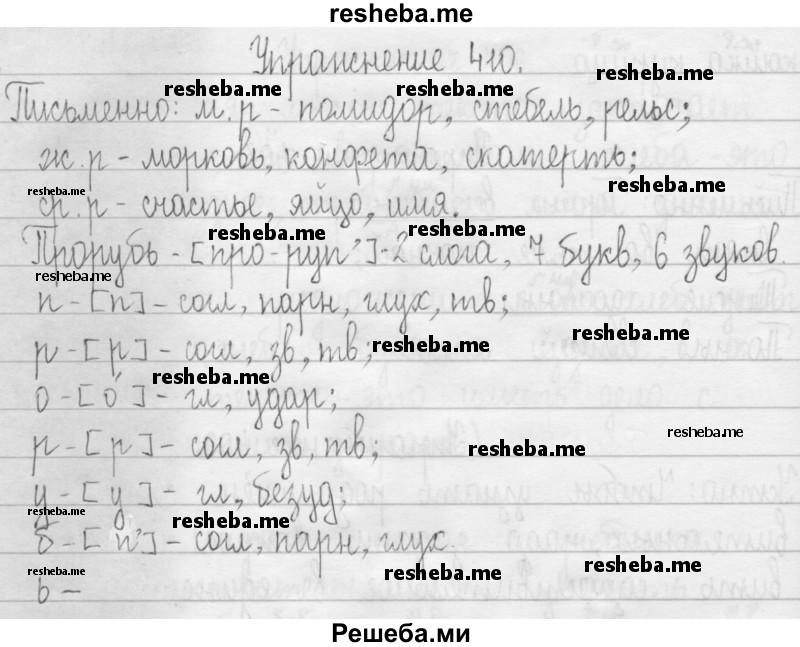 resheba.me
Упражнение 410.
resheba.me
resheba.me resheba.me
Письменно: м.р - помидор, стебель, рельс;
ж.р - морковь, конфета, скатерть;
resheba.me resheba.me
ср.р - счастье, яйцо, имя.
resheba.me resheba.me
Прорубь - [про-руп’] - 2 слога, 7 букв, 6 звуков.
resheba.me
п - [п] - согл, парн, глух, тв;
resheba.me
р - [р] - согл, зв, тв;
resheba.me
resheba.me
о - [о́] - гл, удар;
resheba.me
р - [р] - согл, зв, тв;
resheba.me
у - [у] - гл, безуд;
resheba.me resheba.me
б - [п’] - согл, парн, глух.
resheba.me resheba.me resheba.me
ь -
Решеба.ми